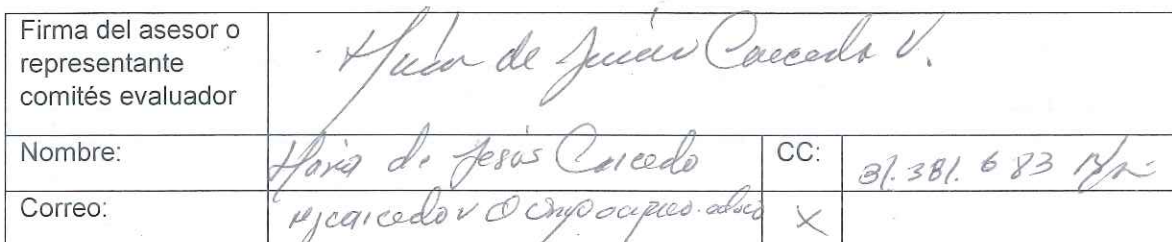 Firma del asesor o
representante
comités evaluador
María de Jesús Caicedo V.
Nombre: María de Jesús Caicedo CC: 31.381.683
Correo: mjcaicedov@ X